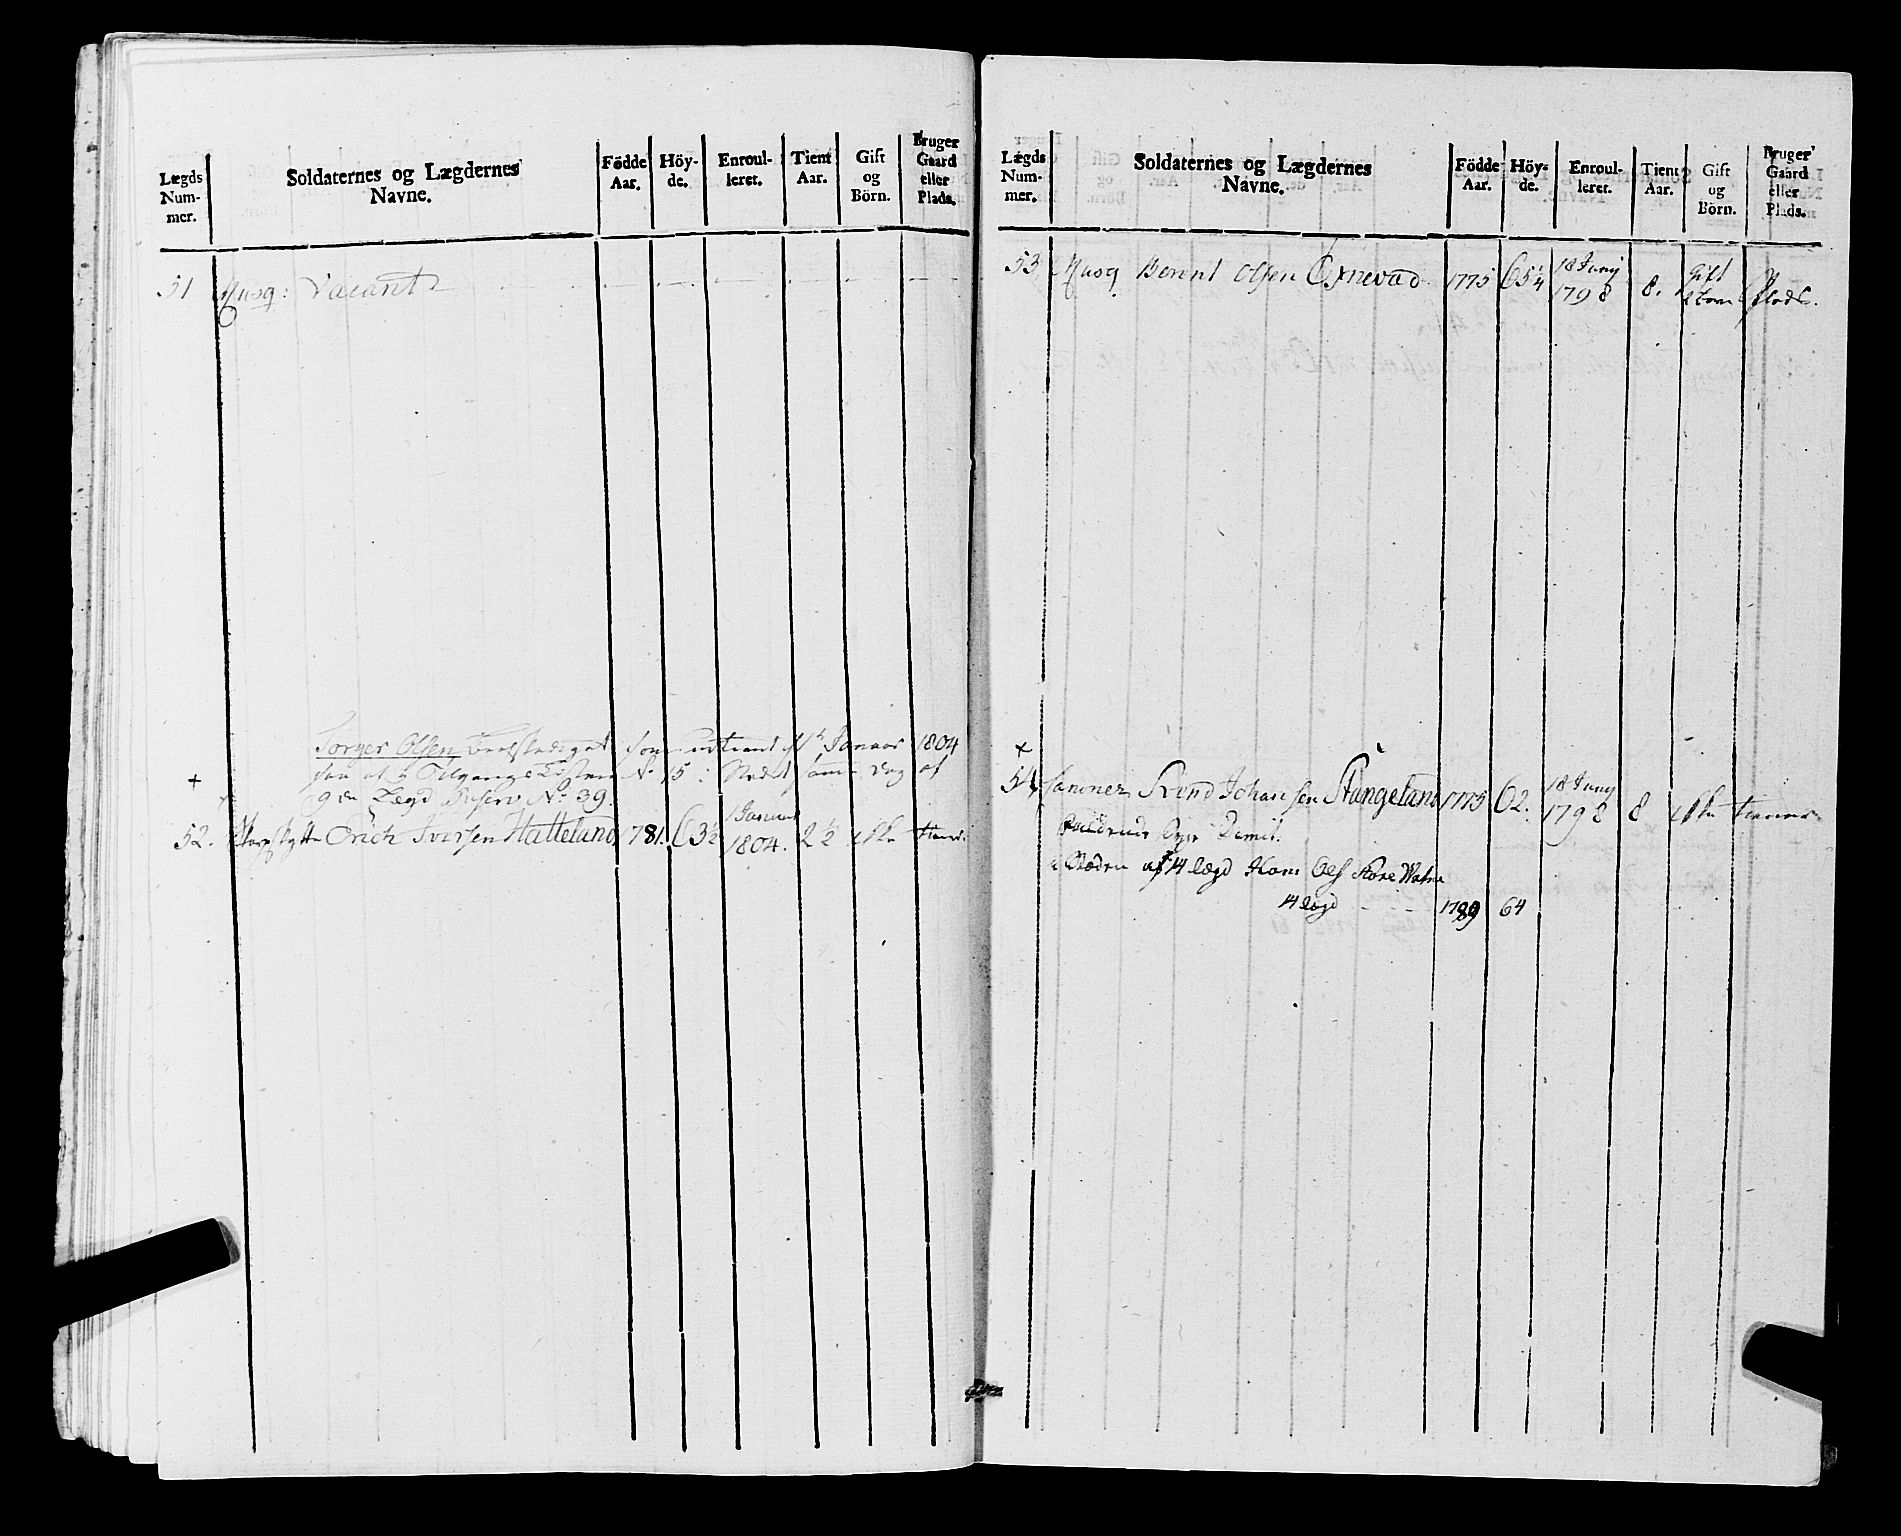 Lægds Num- mer.
Soldaternes og Lægdernes Navne.
Födde Aar.
Höy- de.
Enroul- leret.
Tient Aar.
Gift og Börn.
Bruger Gaard eller Plads.
51 Musq: Vacant
Torger Olsen som 1 Januar 1804
No 15 samme dag af
9de Lægd Reserv No 39.
52. Erich Iversen Hatteland 1781. 63½ 1 Januar 1804. 2½ ikke tiener
Lægds Num- mer.
Soldaternes og Lægdernes Navne.
Födde Aar.
Höy- de.
Enroul- leret.
Tient Aar.
Gift og Börn.
Bruger Gaard eller Plads.
53 Musq Berent Olsen 1775 65¼ 18 Juny 1798 8. gift Plads.
54 Svend Johansen Stangeland 1775 62. 18 Juny 1798 8 ikke tiener
Dimit.
i Steden af 14 lægd Hans Ols Store Watne
14 lægd - - 1789 64